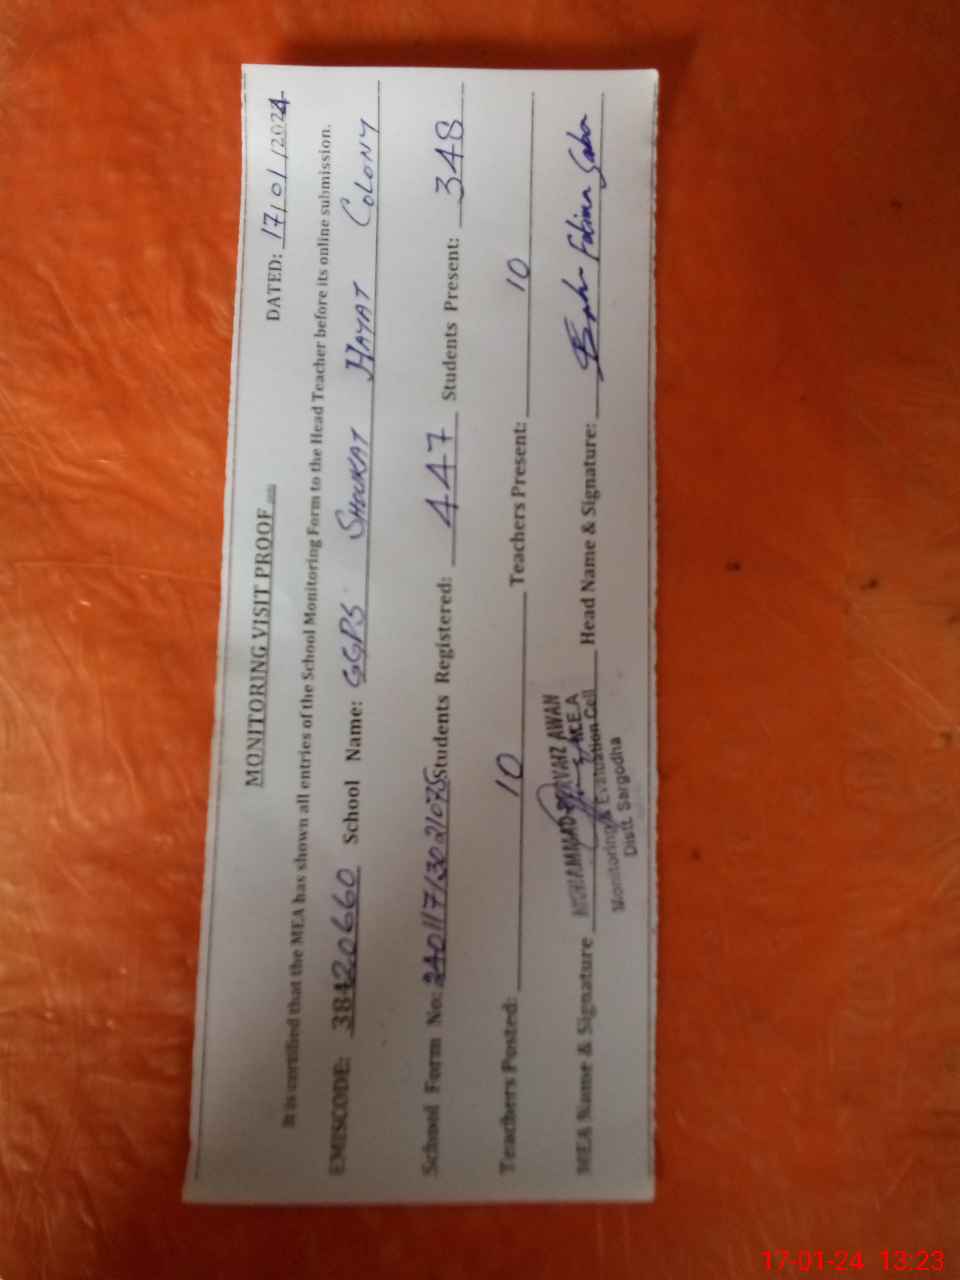 MONITORING VISIT PROOF
DATED: 17/01/2024
It is certified that the MEA has shown all entries of the School Monitoring Form to the Head Teacher before its online submission.
EMISCODE: 38420660 School Name: GGPS SHOUKAT HAYAT COLONY
School Form No: 24011713021075 Students Registered: 447 Students Present: 348
Teachers Posted: 10 Teachers Present: 10
MEA Name & Signature MUHAMMAD PERVAIZ AWAN Head Name & Signature: Fatima
M.E.A
Monitoring & Evaluation Cell
Distt. Sargodha
17-01-24 13:23